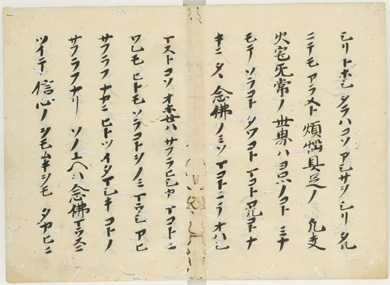 シリトホシタラハコソアシサヲシリタル
ニテモアラメト煩悩具足ノ凡夫
火宅无常ノ世界ハヨロツノコトミナ
モテソラコトタワコトマコトアルコトナ
キニタヽ念佛ノミソマコトニテオハシ
マストコソオホセハサフラヒシカマコトニ
ワレモヒトモソラコトヲノミマフシアヒ
サフラフナカニヒトツイタマシキコトノ
サフラフナリソノユヘハ念佛マフスニ
ツイテ信心ノオモムキヲモタカヒニ